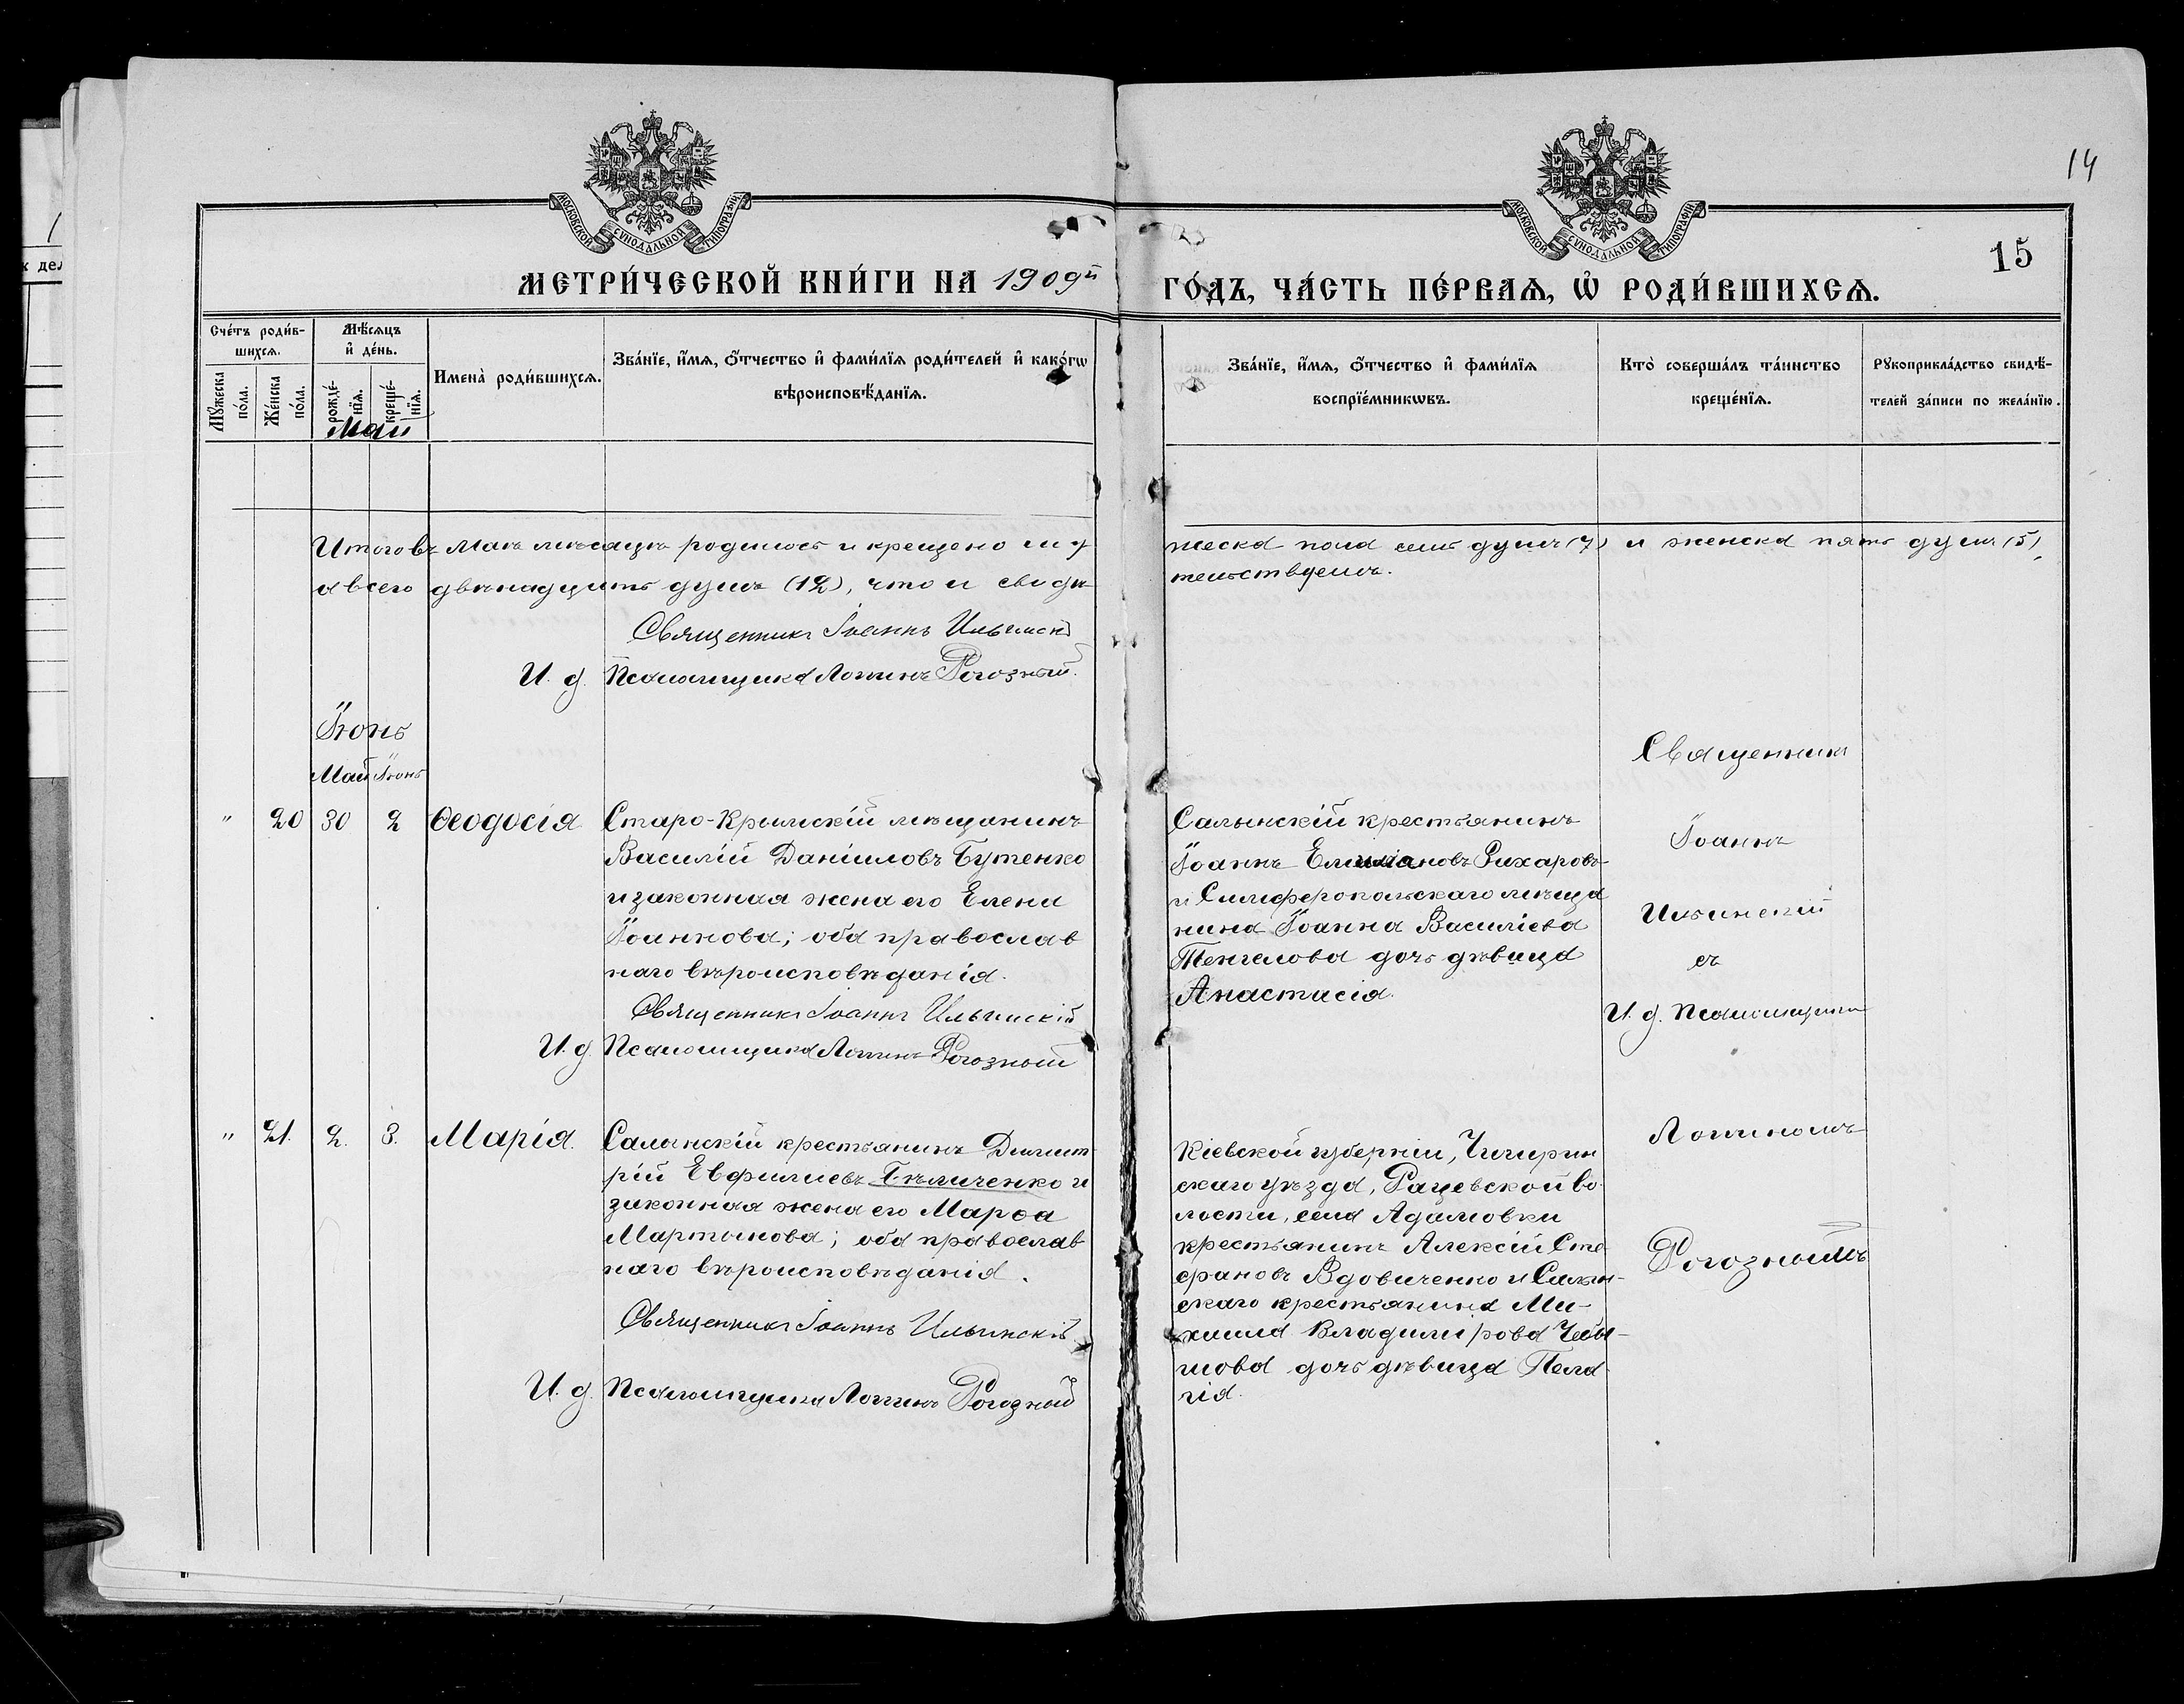 14
МОСКОВСКОЙ СУНОДАЛЬНОЙ ТИПОГРАФІИ
МОСКОВСКОЙ СУНОДАЛЬНОЙ ТИПОГРАФІИ
15
МЕТРИ́ЧЕСКОЙ КНИ́ГИ НА 1909й ГО́ДЪ, ЧА́СТЬ ПЕ́РВАѦ, Ѡ҆ РОДИ́ВШИХСѦ.
Сче́тъ роди́в-
шихсѧ.
Мꙋ́жеска по́ла.
Же́нска по́ла.
Мѣ́сѧцъ
и҆ де́нь.
рожде́-нїѧ.
креще́-нїѧ.
Имена̀ роди́вшихсѧ.
Зва́нїе, и҆́мѧ, ѻ҆́тчество и҆ фами́лїѧ роди́телей и҆ како́гѡ
вѣроисповѣ́данїѧ.
Зва́нїе, и҆́мѧ, ѻ҆́тчество и҆ фами́лїѧ
воспрїе́мникѡвъ.
Кто̀ соверша́лъ та́инство
креще́нїѧ.
Рꙋкоприкла́дство свидѣ́-
телей за́писи по жела́нїю.
Май
Итого въ Маѣ мѣсяцѣ родилось и крещено му жеска пола семь душъ (7) и женска пять душъ (5),
а всего двѣнадцать душъ (12), что и свидѣ тельствуемъ.
Священникъ Іоаннъ Ильинскій
И. д. Псаломщика Логинъ Рогозный.
Іюнь
Май Іюнь
" 20 30 2 Ѳеодосія
Старо-Крымскій мѣщанинъ
Василій Даніиловъ Бутенко
и законная жена его Елена
Іоаннова; оба православ
наго вѣроисповѣданія.
Священникъ Іоаннъ Ильинскій
И. д. Псаломщика Логинъ Рогозный
Салынскій крестьянинъ
Іоаннъ Емиліановъ
и Симферопольскаго мѣща
нина Іоанна Василіева
дочь дѣвица
Анастасія.
Священникъ
Іоаннъ
Ильинскій
съ
И. д. Псаломщика
Логиномъ
Рогознымъ
" 21. 2. 3. Марія.
Салынскій крестьянинъ Димит
рій Евфиміевъ Бѣличенко и
законная жена его Марѳа
Мартынова; оба православ
наго вѣроисповѣданія.
Священникъ Іоаннъ Ильинскій
И. д. Псаломщика Логинъ Рогозный
Кіевской губерніи, Чигирин
скаго уѣзда, Рацевской во-
лости, села Адамовки
крестьянинъ Алексій Сте
фановъ Вдовиченко и Салын-
скаго крестьянина Ми-
хаила Владимірова
дочь дѣвица Пела
гія.